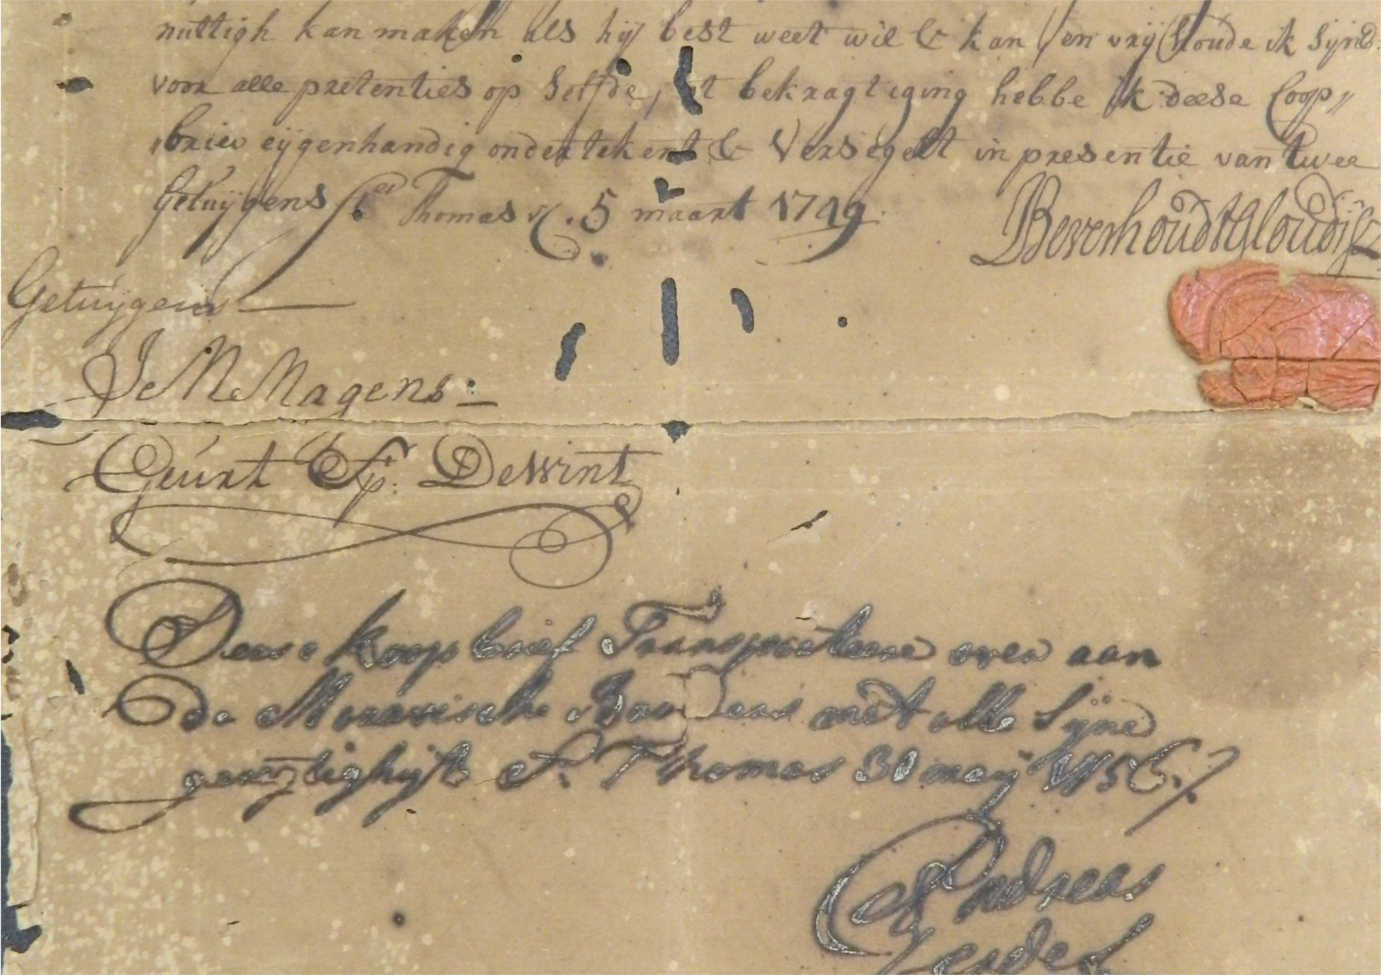 nuttigh kan maken als hij best weet wil & kan en vrij houde ik sijnd:
voor alle pretenties op selfde, tot bekragtiging hebbe ik deese Coop,,
briev eijgenhandig ondertekent & Versegelt in presentie van twee
Getuijgens St Thomas d. 5 maart 1749.
Beverhoudt
Getuijgens
Je M Magens
Geurt Sp. DeWint
Deese koopbrief Transporteere over aan
de Moravische Broeders met alle Sijne
geregtighijt St. Thomas 30 meij 1756.
Andreas